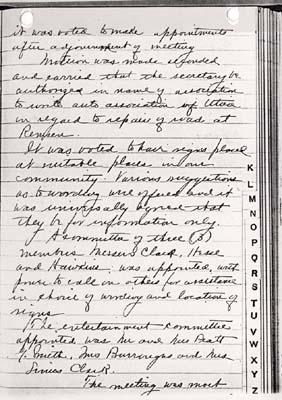 it was voted to make appointments
after adjournment of meeting
Motion was made seconded
and carried that the secretary be
authorized in name of association
to write auto association of Utica
in regard to repairs of road at
Remsen.
It was voted to have signs placed
at suitable places in our
community. Various suggestions
as to wording were offered and it
was universally agreed that
they be for information only.
A committee of three (3)
members Messrs Clark, House
and Hawkins was appointed, with
power to call on others for assistance
in choice of wording and location of
signs
The entertainment committee
appointed was Mr and Mrs Pratt
Smith, Mrs Burroughs and Mrs
Clark.
The meeting was most
K
L
M
N
O
P
Q
R
S
T
U
V
W
X
Y
Z